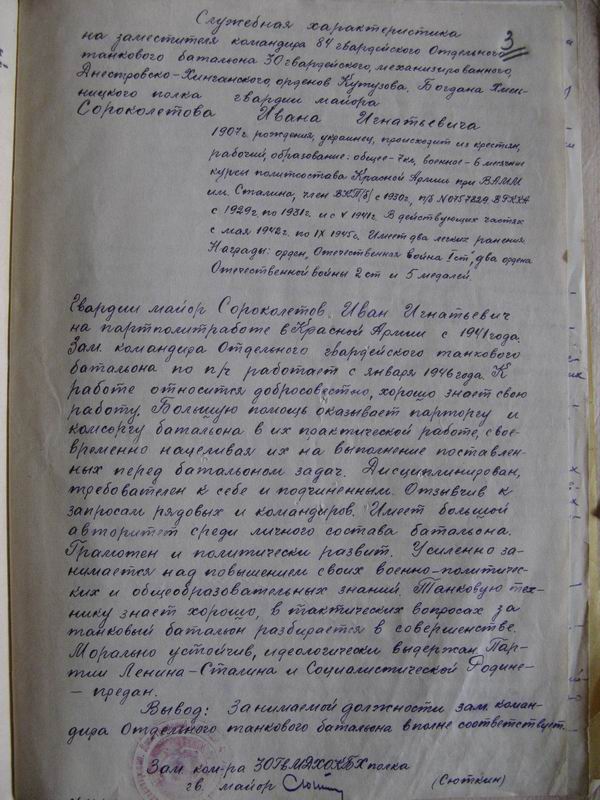 Служебная характеристика
3
на заместителя командира 84 гвардейского Отдельного
танкового батальона 30 гвардейского, механизированного,
Днестровско-Хинганского, орденов Кутузова, Богдана Хмель-
ницкого полка гвардии майора
Сороколетова Ивана Игнатьевича
1907г. рождения, украинец, происходит из крестьян,
рабочий, образование: общее-7кл, военное-6 месячные
курсы политсостава Красной Армии при ВАММ
им. Сталина, член ВКП/б/ с 1930г, п/б N0757829. В РККА
с 1929г. по 1931г. и с V 1941г. В действующих частях
с мая 1942г. по IX 1945г. Имеет два легких ранения.
Награды: орден, Отечественная война I ст", два ордена
Отечественной войны 2 ст и 5 медалей.
Гвардии майор Сороколетов Иван Игнатьевич
на партполитработе в Красной Армии с 1941 года.
Зам. командира Отдельного гвардейского танкового
батальона по п/ч работает с января 1946 года. К
работе относится добросовестно, хорошо знает свою
работу. Большую помощь оказывает парторгу и
комсоргу батальона в их практической работе, свое-
временно нацеливая их на выполнение поставлен-
ных перед батальоном задач. Дисциплинирован,
требователен к себе и подчиненным. Отзывчив к
запросам рядовых и командиров. Имеет большой
авторитет среди личного состава батальона.
Грамотен и политически развит. Усиленно за-
нимается над повышением своих военно-политичес-
ких и общеобразовательных знаний. Танковую тех-
нику знает хорошо, в тактических вопросах за
танковый батальон разбирается в совершенстве.
Морально устойчив, идеологически выдержан, Пар-
тии Ленина-Сталина и Социалистической Родине-
- предан.
Вывод: Занимаемой должности зам. коман-
дира Отдельного танкового батальона вполне соответствует.
Зам ком-ра 30ГвМДХОКБХ полка
гв. майор (Сюткин)